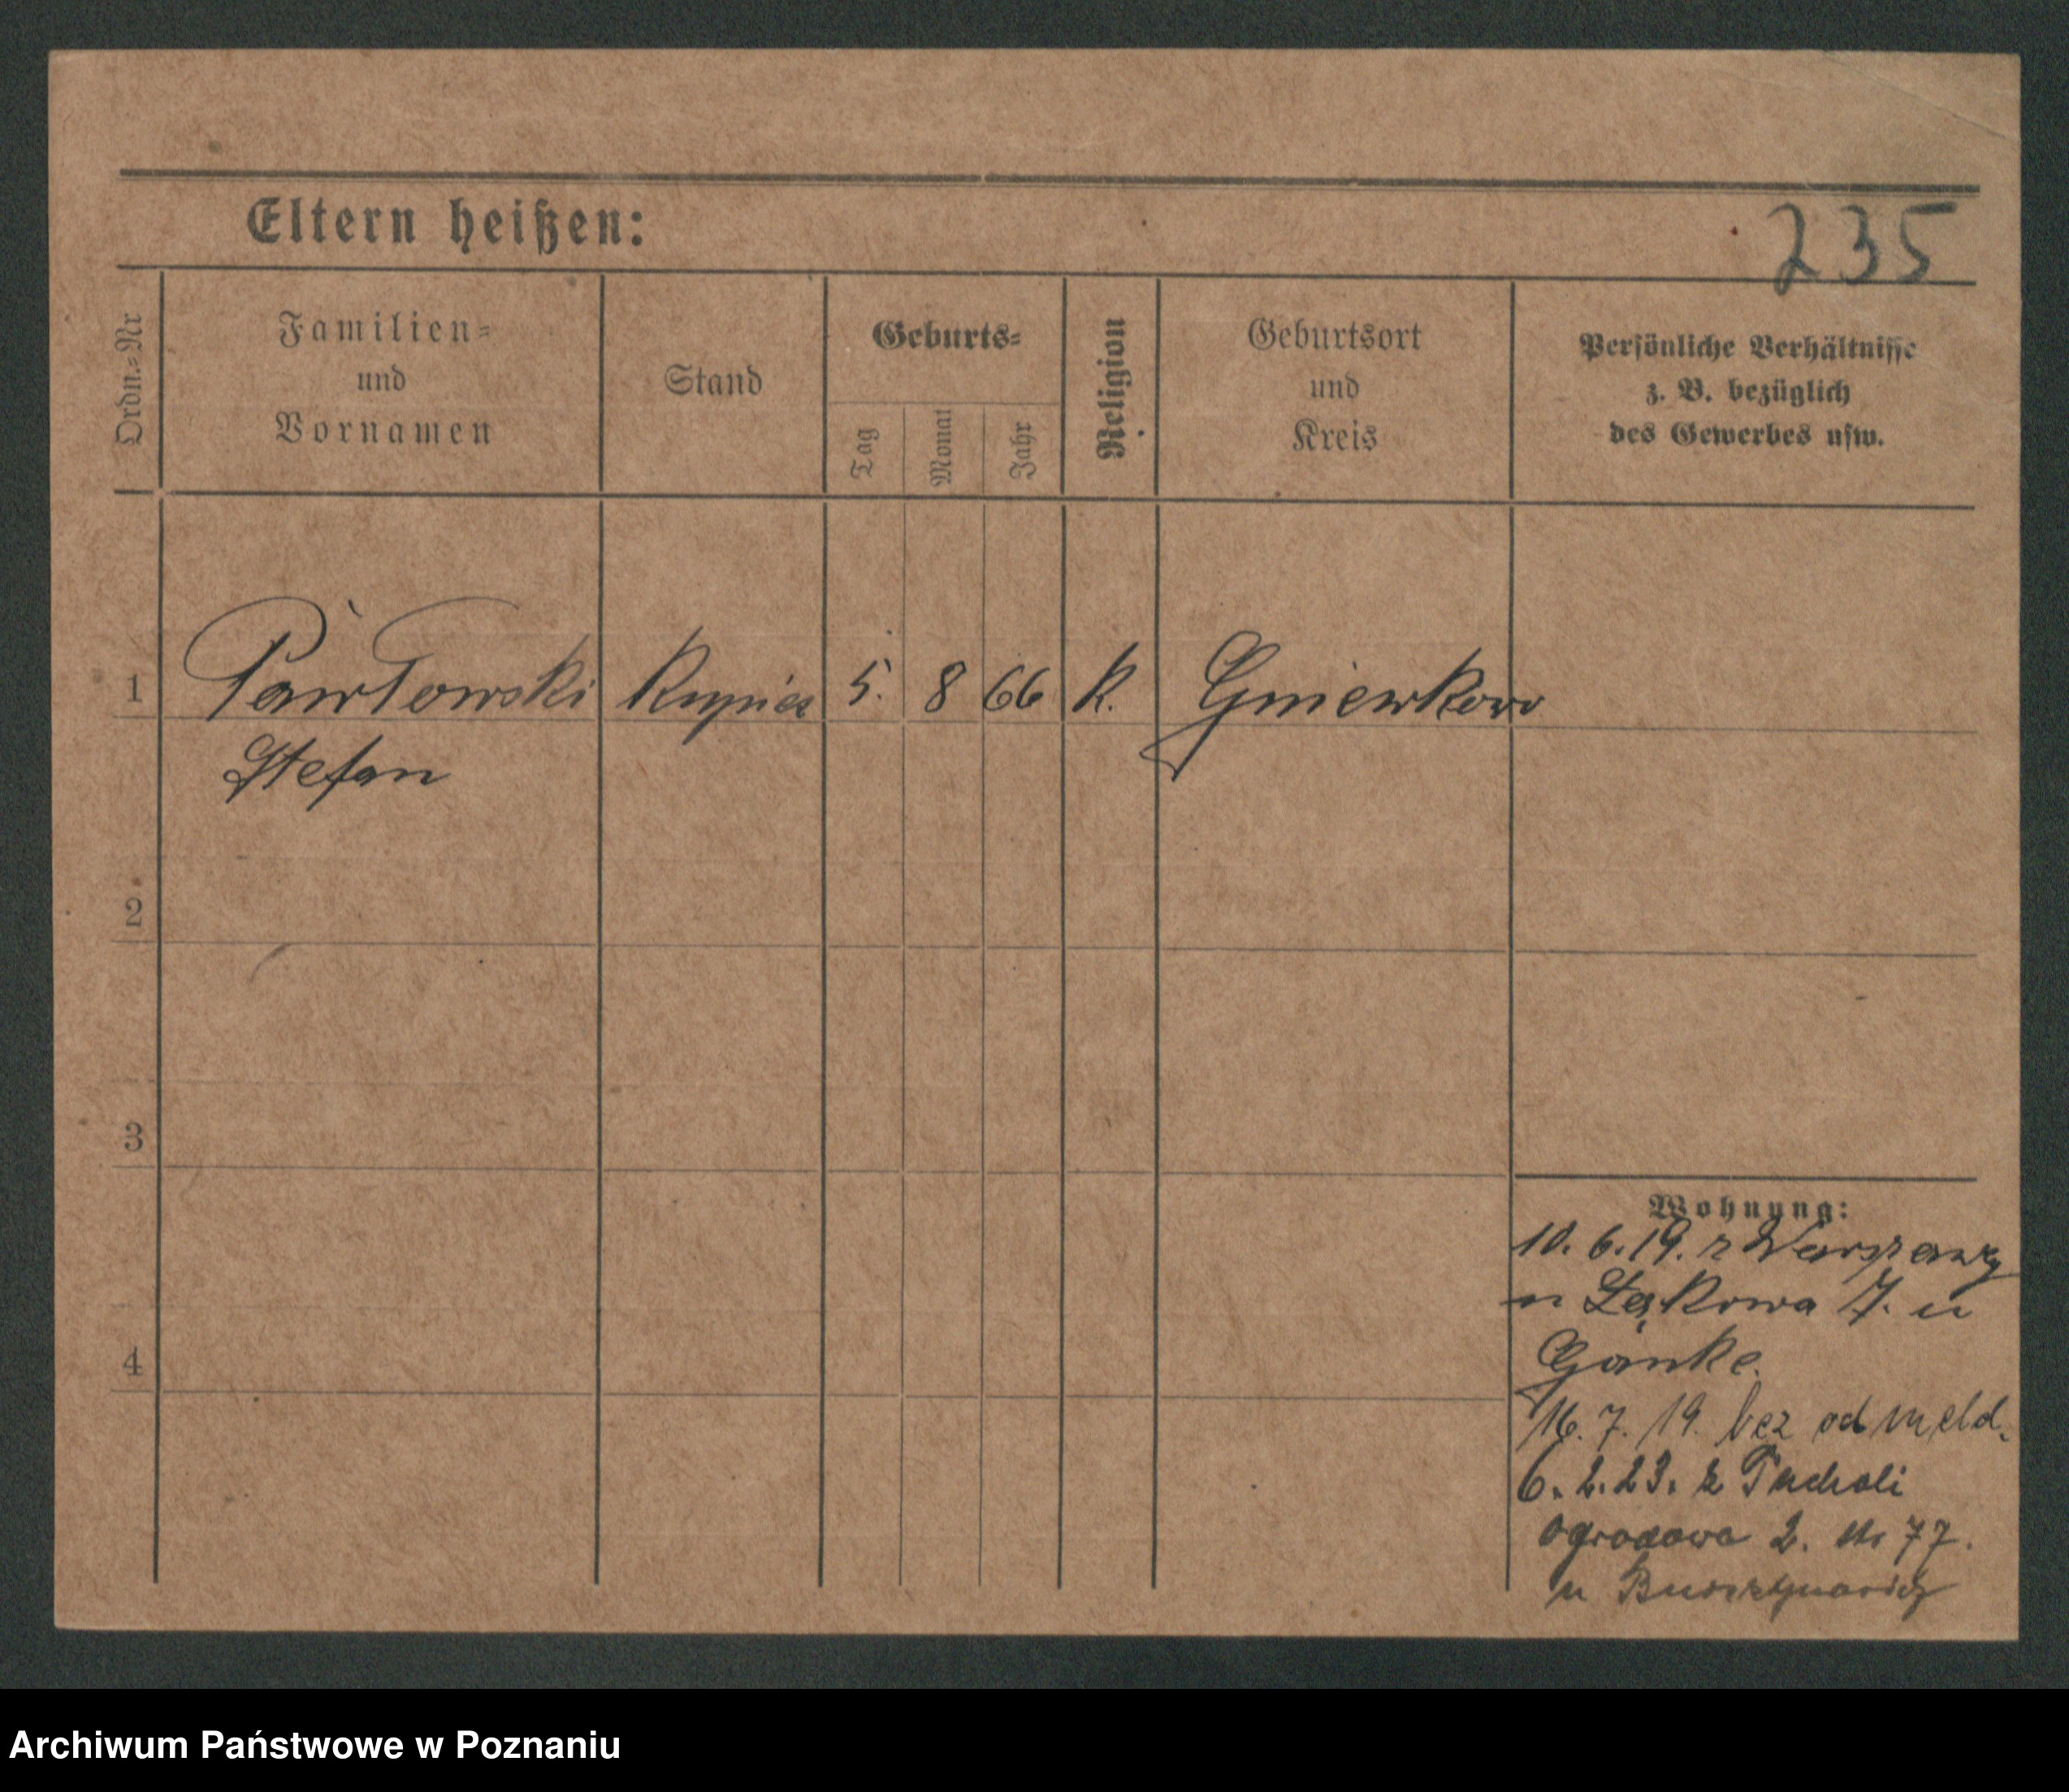 Eltern heißen:
235
Ordn.=Nr
Familien=
und
Vornamen
Stand
Geburts=
Tag
Monat
Jahr
Religion
Geburtsort
und
Kreis
Persönliche Verhältnisse
z. B. bezüglich
des Gewerbes usw.
1 Pawłowski Kupiec 5. 8 66 k. Gniewkowo
Stefan
2
3
4
Wohnung:
10. 6. 19. z Warszawy
Łąkowa 7. u
Ganke.
16. 7. 19. bez odmeld.
6. 2. 23. z Tucholi
Ogrodowa 2. 77.
u
Archiwum Państwowe w Poznaniu